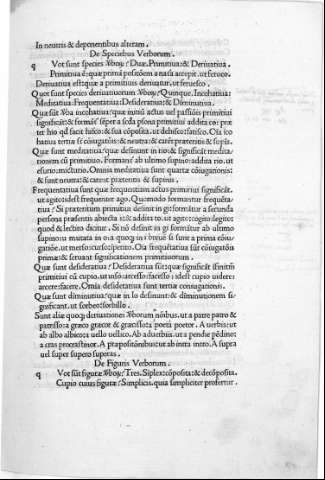 In neutris & deponentibus alteram.
De Speciebus Verborum.
q Vot sunt species Vboꝝ? Duæ. Primitiua & Deriuatiua.
Primitiua é: quæ primã positõem a natã accepit. ut ferueo.
Deriuatiua est: quæ a primitiuis deriuatur. ut feruesco.
Quot sunt species deriuatiuorum Vboꝝ? Quinque. Incohatiua:
Meditatiua: Frequentatiua: Desideratiua: & Diminutiua.
Quæ sũt Vba incohatiua? quæ initiũ actus uel passiõis primitiui
significãt: & formãt sẽper a scd̃a psona primitiui addita co: præ
ter hio qd̃ facit hisco: & sua cõposita. ut dehisco: fatisco. Oĩa ico
hatiua tertiæ sũt cõiugatiõis: & neutra: & carẽt præteritis & supis.
Quæ sunt meditatiua? quæ desinunt in rio: & significãt medita-
tionem cũ primitiuo. Formant᷑ ab ultimo supino: addita rio. ut
esurio: micturio. Omnia meditatiua sunt quartæ cõiugationis:
& sunt neutra: & carent præteritis & supinis.
Frequentatiua sunt quæ frequentiam actus primitiui significãt.
ut agito: idest frequenter ago. Quomodo formantur frequẽta-
tiua? Si præteritum primitiui desinit in gi: formãtur a secunda
persona præsentis abiecta is: & addito to. ut agito: rogito: legito:
quod & lectito dicitur. Si nõ desinit in gi formãtur ab ultimo
supino: u mutata in o: a quoq; in i breuẽ si sunt a prima cõiu-
gatiõe. ut merso: curso: sperno. Oĩa frequẽtatiua sũt cõiugatiõis
primæ: & seruant significationem primitiuorum.
Quæ sunt desideratiua? Desideratiua sũt: quæ significãt ifinitũ
primitiui cũ cupio. ut uiso: arcesso: facesso: idest cupio uidere:
arcere: facere. Omnia desideratiua sunt tertiæ coniugationis.
Quæ sunt diminutiua? quæ in lo desinunt: & diminutionem si-
gnificant. ut sorbeo: sorbillo.
Sunt aliæ quoq; deriuationes Vborum a nõibus. ut a patre patro &
patrisso: a græco græcor & græcisso: a poeta poetor. A uerbis: ut
ab albo albico: a uello uellico. Ab aduerbiis. ut a pende pẽdinet
a cras procrastinor. A ppositiõnibus: ut ab intra intro. A supra
uel super supero superas.
De Figuris Verborum.
q Vot sũt figuræ Vboꝝ? Tres. Siplex: cõposita: & decõposita.
Cupio cuius figuræ? Simplicis. quia simpliciter profertur.